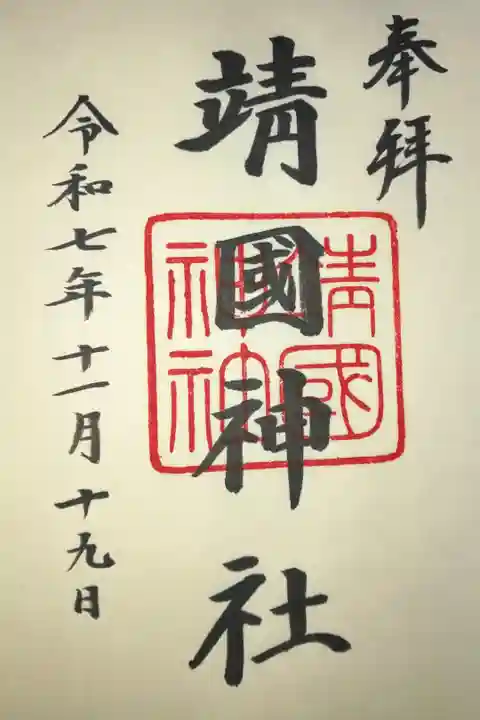 奉拝
靖國神社
令和七年十一月十九日